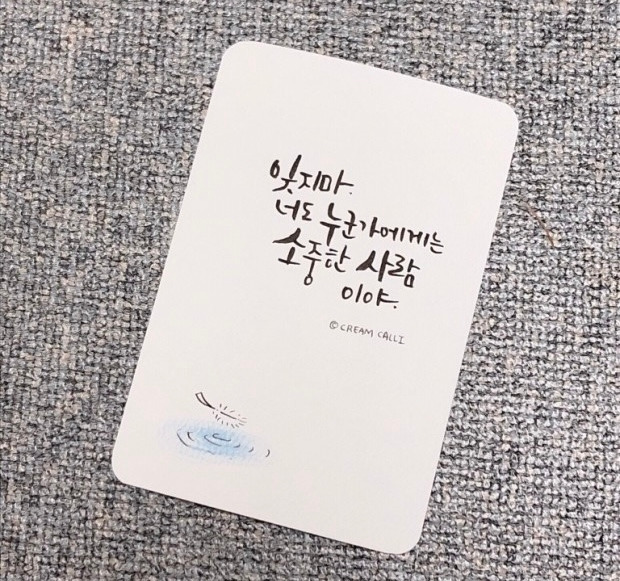 잊지마.
너도 누군가에게는
소중한 사람
이야.
©CREAM CALLI